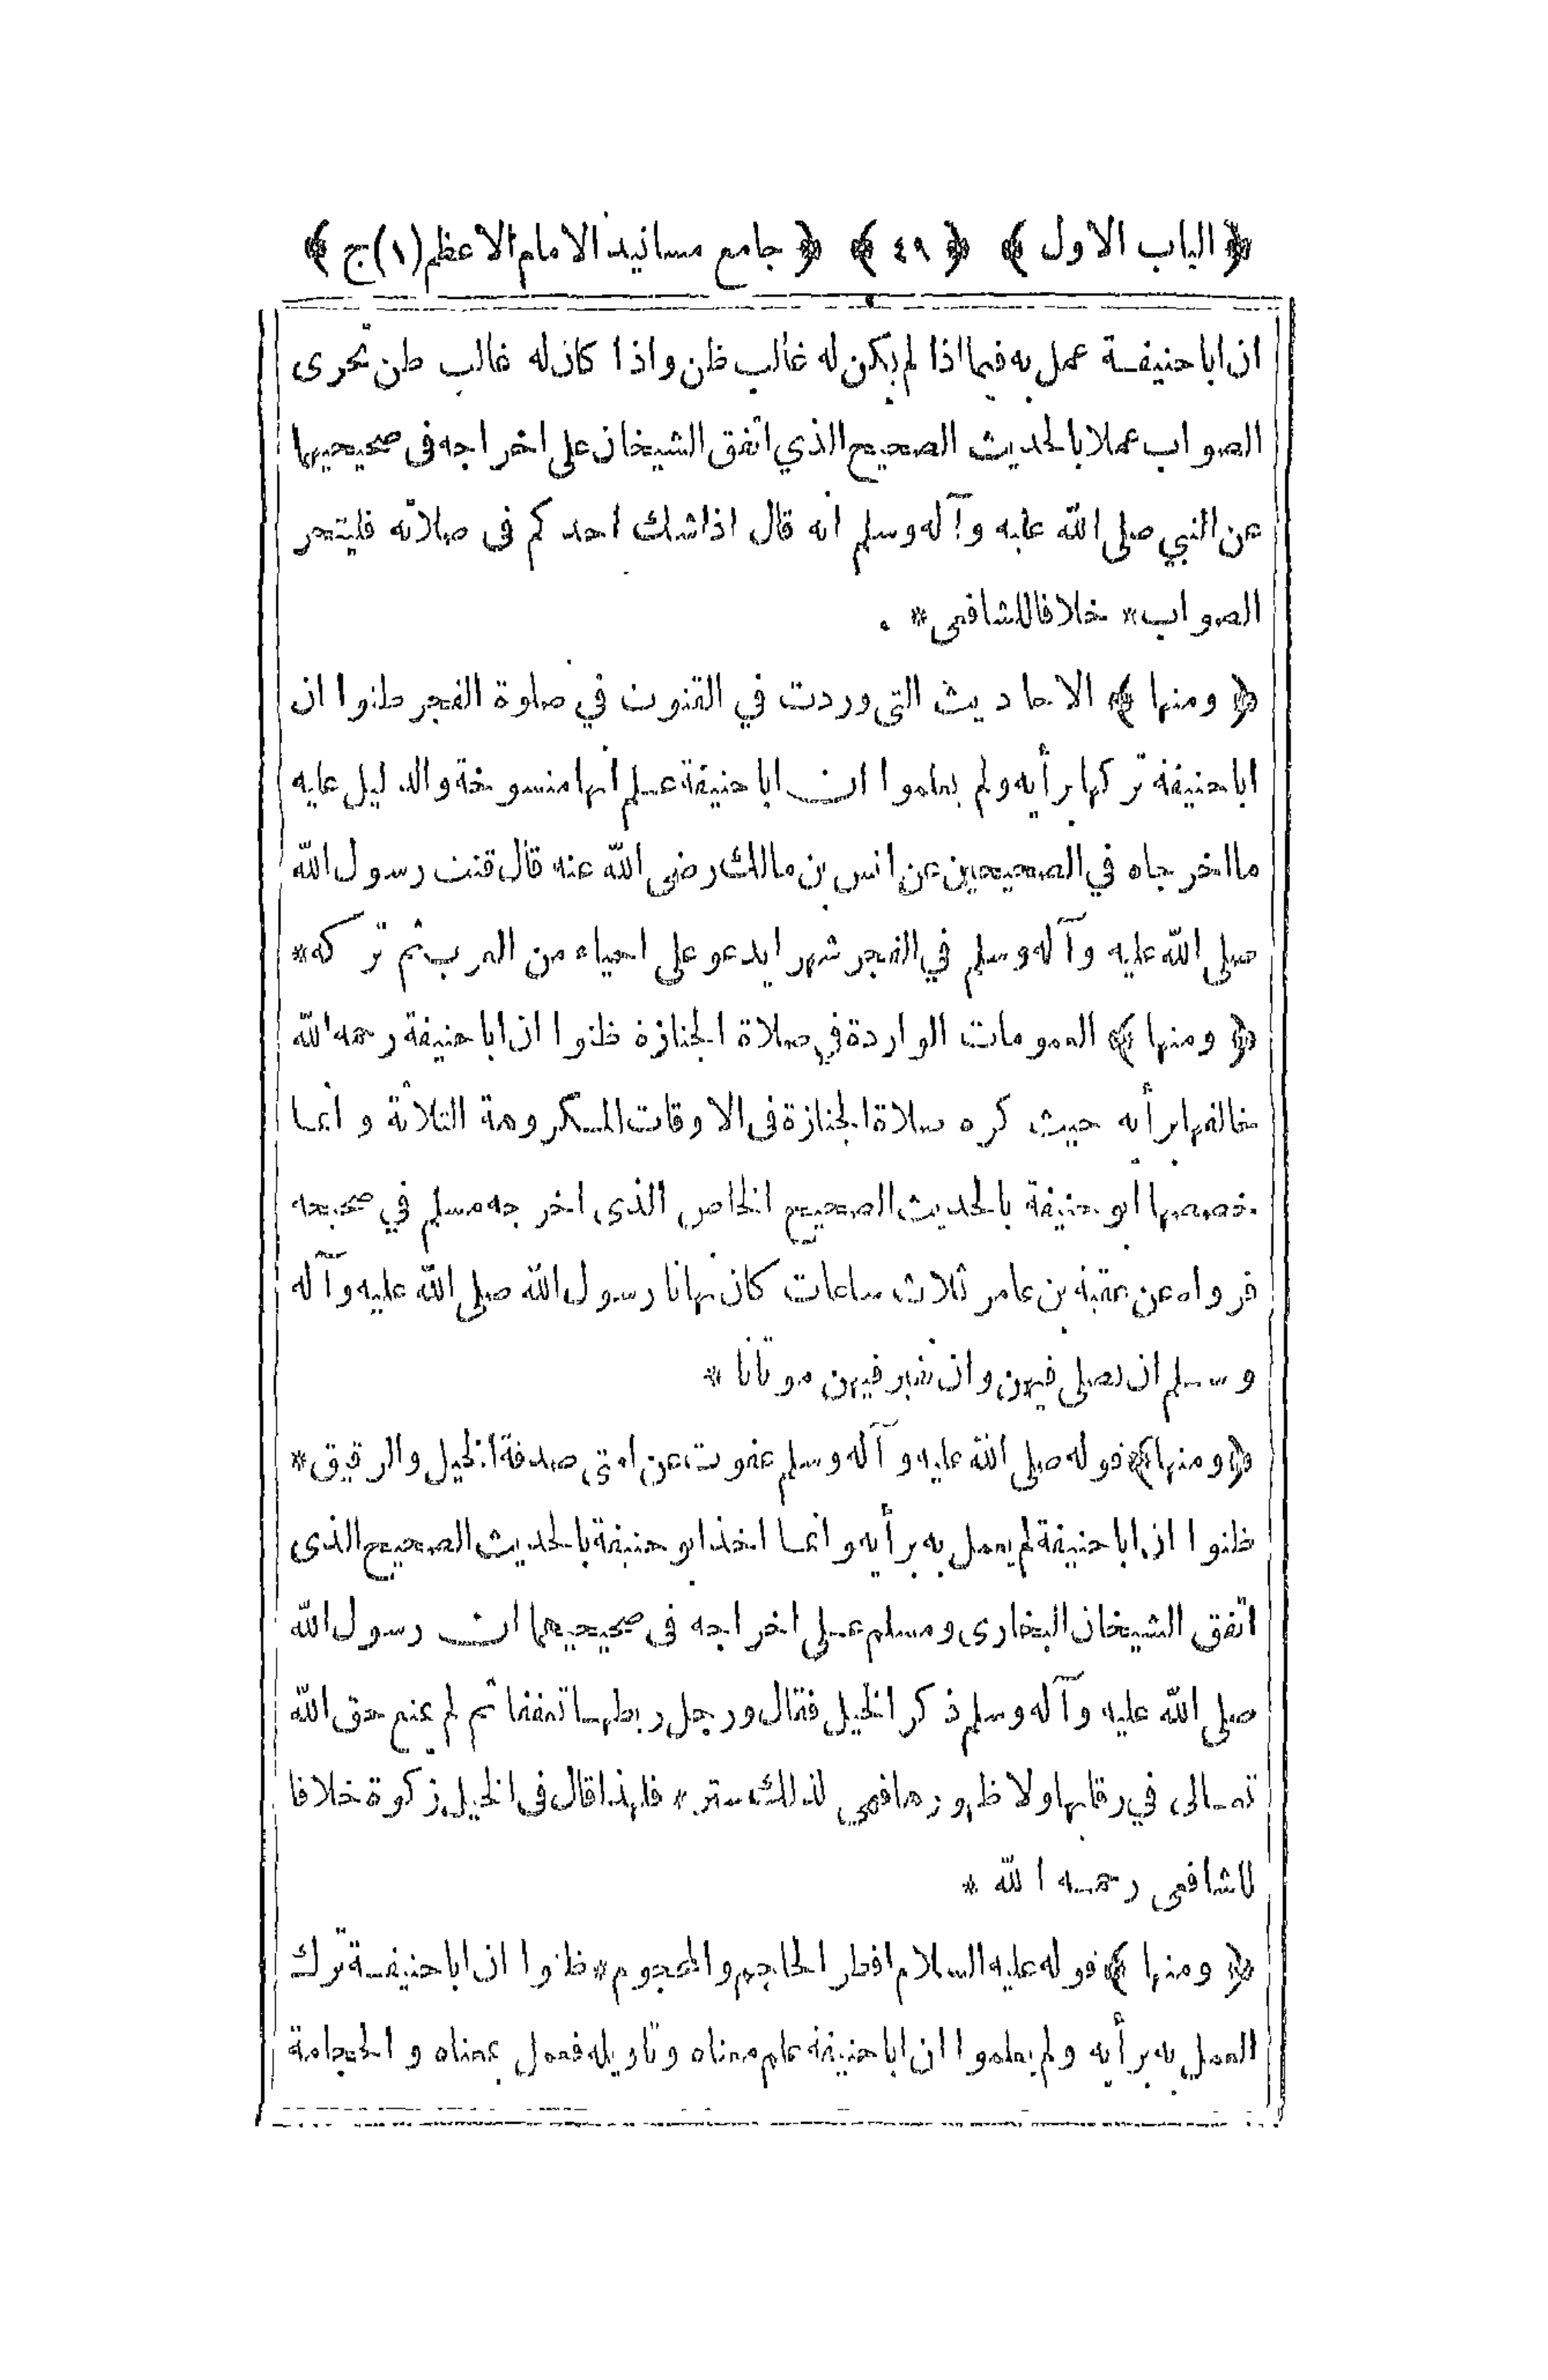 ﴿ الباب الاول ﴾ ﴿ ٤٩ ﴾ ﴿ جامع مسانيد الامام الاعظم (١) ج ﴾
ان ابا حنيفة عمل به فيما اذا لم يكن له غالب ظن واذا كان له غالب ظن تحرى
الصواب عملا بالحديث الصحيح الذي اتفق الشيخان على اخراجه فى صحيحيهما
عن النبي صلى الله عليه وآله وسلم انه قال اذا شك احدكم فى صلاته فليتحر
الصواب * خلافا للشافعى *
﴿ ومنها ﴾ الاحاديث التى وردت في القنوت في صلوة الفجر ظنوا ان
ابا حنيفة تركها برأيه ولم يعلموا ان ابا حنيفة علم انها منسوخة والدليل عليه
ما اخرجاه في الصحيحين عن انس بن مالك رضى الله عنه قال قنت رسول الله
صلى الله عليه وآله وسلم في الفجر شهرا يدعو على احياء من العرب ثم تركه *
﴿ ومنها ﴾ العمومات الواردة في صلاة الجنازة ظنوا ان ابا حنيفة رحمه الله
خالفها برأيه حيث كره صلاة الجنازة فى الاوقات المكروهة الثلاثة وانما
خصصها ابو حنيفة بالحديث الصحيح الخاص الذى اخرجه مسلم في صحيحه
فرواه عن عقبة بن عامر ثلاث ساعات كان نهانا رسول الله صلى الله عليه وآله
وسلم ان نصلى فيهن وان نقبر فيهن موتانا *
﴿ ومنها ﴾ قوله صلى الله عليه وآله وسلم عفوت عن امتى صدقة الخيل والرقيق *
ظنوا ان ابا حنيفة لم يعمل به برأيه وانما اخذ ابو حنيفة بالحديث الصحيح الذى
اتفق الشيخان البخارى ومسلم على اخراجه فى صحيحيهما ان رسول الله
صلى الله عليه وآله وسلم ذكر الخيل فقال ورجل ربطها تعففا ثم لم يمنع حق الله
تعالى في رقابها ولا ظهورها فهي لذلك ستر * فلهذا قال فى الخيل زكوة خلافا
للشافعى رحمه الله *
﴿ ومنها ﴾ قوله عليه السلام افطر الحاجم والمحجوم * ظنوا ان ابا حنيفة ترك
العمل به برأيه ولم يعلموا ان ابا حنيفة علم معناه وتاويله فعمل بمعناه والحجامة